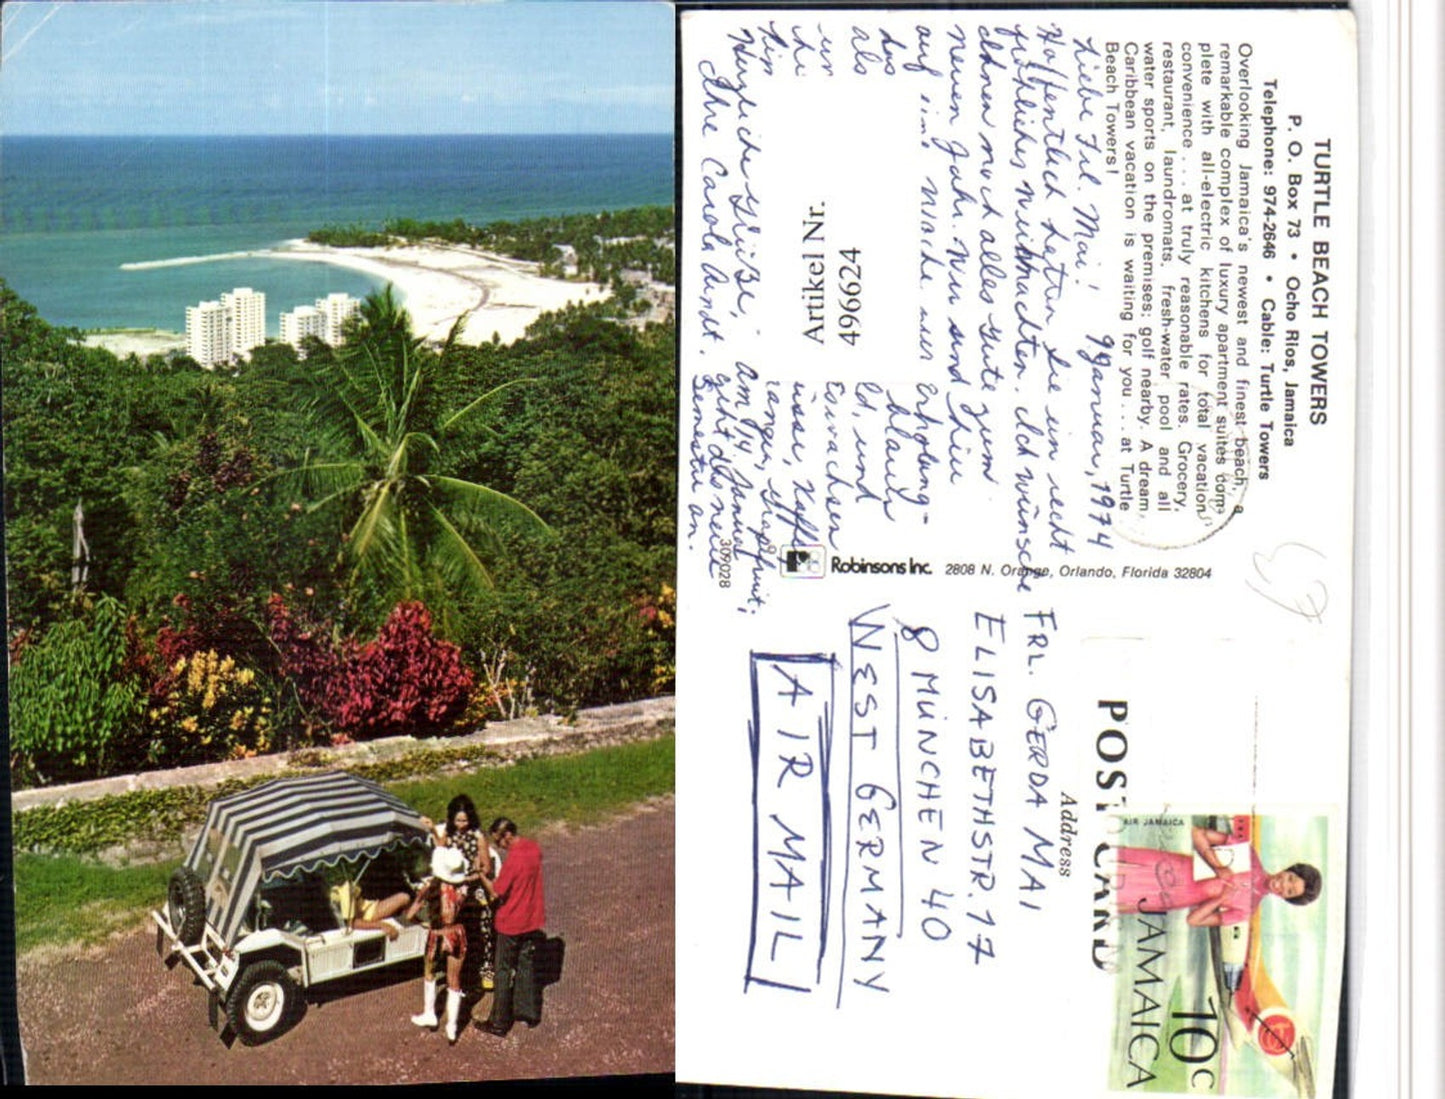 TURTLE BEACH TOWERS
P. O. Box 73 • Ocho Rios, Jamaica
Telephone: 974-2646 • Cable: Turtle Towers
Overlooking Jamaica's newest and finest beach, a
remarkable complex of luxury apartment suites com-
plete with all-electric kitchens for total vacation
convenience . . . at truly reasonable rates. Grocery,
restaurant, laundromats, fresh-water pool and all
water sports on the premises; golf nearby. A dream
Caribbean vacation is waiting for you . . . at Turtle
Beach Towers!
9. Januar, 1974
Liebe Frl. Mai!
Hoffentlich hatten Sie ein recht
fröhliches Weihnachten. Ich wünsche
Ihnen noch alles Gute zum
neuen Jahr. Wir sind hier
auf eine Woche zur Erholung-
das blaue
als ld, und
un Erwachsen
hi üsse, Kaffe
Lim ranger, Grapefruit;
Am 14. Januar
geht das neue
Semester an.
Herzliche Grüße,
Ihre Carola Arndt.
Artikel Nr.
496624
309028
Robinsons Inc. 2808 N. Orange, Orlando, Florida 32804
POST CARD
Address
FRL. GERDA MAI
ELISABETHSTR. 17
8 MÜNCHEN 40
WEST GERMANY
AIR MAIL
AIR JAMAICA
JAMAICA
10c